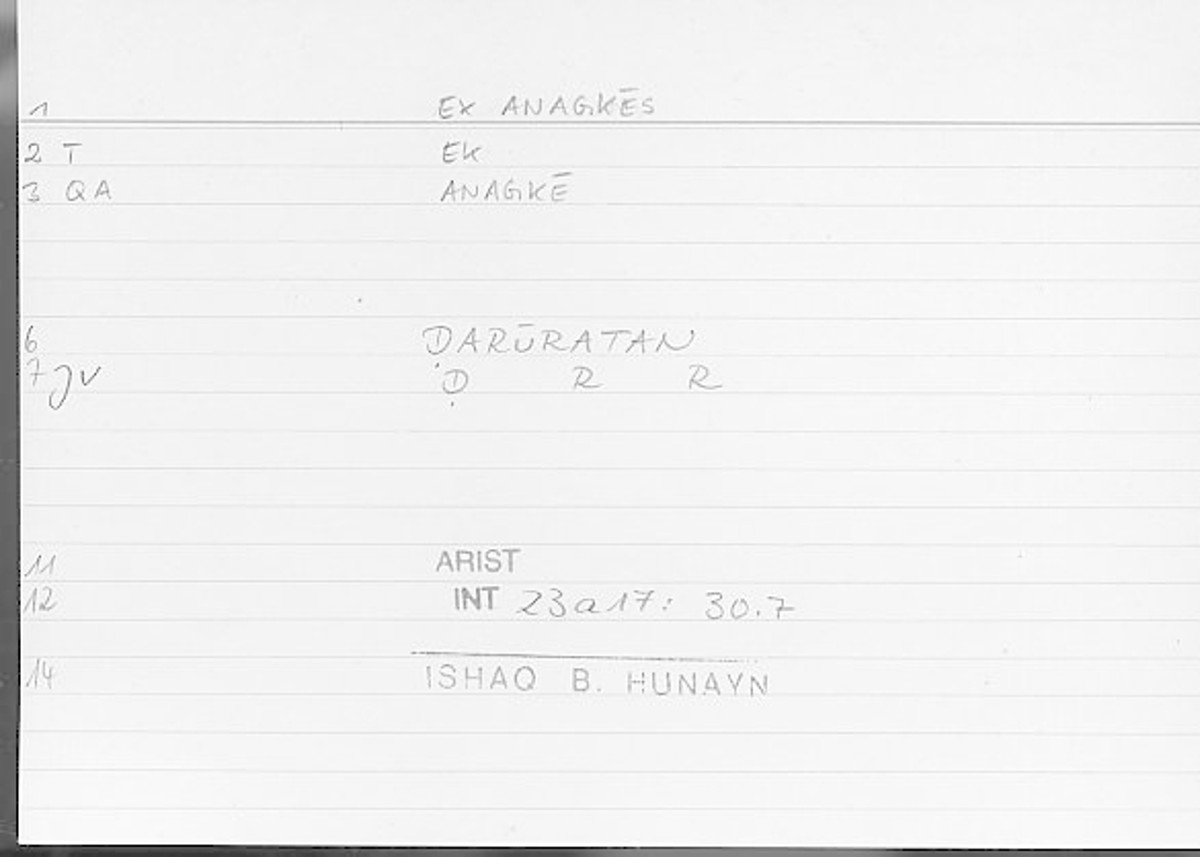 1 EX ANAGKĒS
2 T EK
3 QA ANAGKĒ
6 ḌARŪRATAN
7 JV Ḍ R R
11 ARIST
12 INT 23a17: 30.7
14 ISHAQ B. HUNAYN